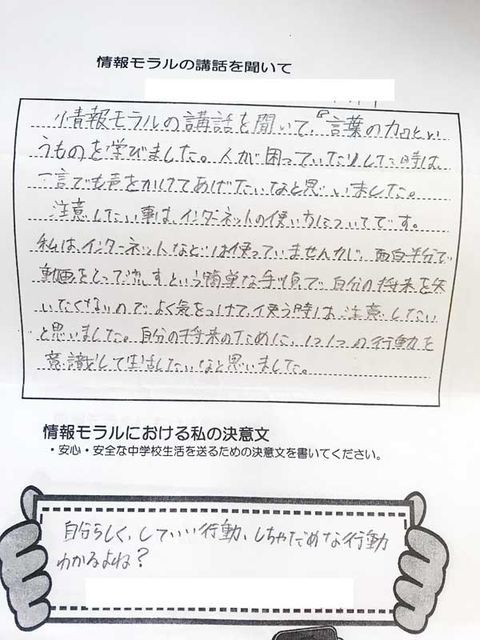 情報モラルの講話を聞いて
情報モラルの講話を聞いて、『言葉の力』とい
うものを学びました。人が困っていたりした時は、
一言でも声をかけてあげたいなと思いました。
注意したい事は、インターネットの使い方についてです。
私は、インターネットなどは使っていませんが、面白半分で
動画をとって流すという簡単な手順で、自分の将来を失
いたくないので、よく気をつけて、使う時は注意したい
と思いました。自分の将来のために、1つ1つの行動を
意識して生活したいなと思いました。
情報モラルにおける私の決意文
・安心・安全な中学校生活を送るための決意文を書いてください。
自分らしく、していい行動、しちゃだめな行動
わかるよね？